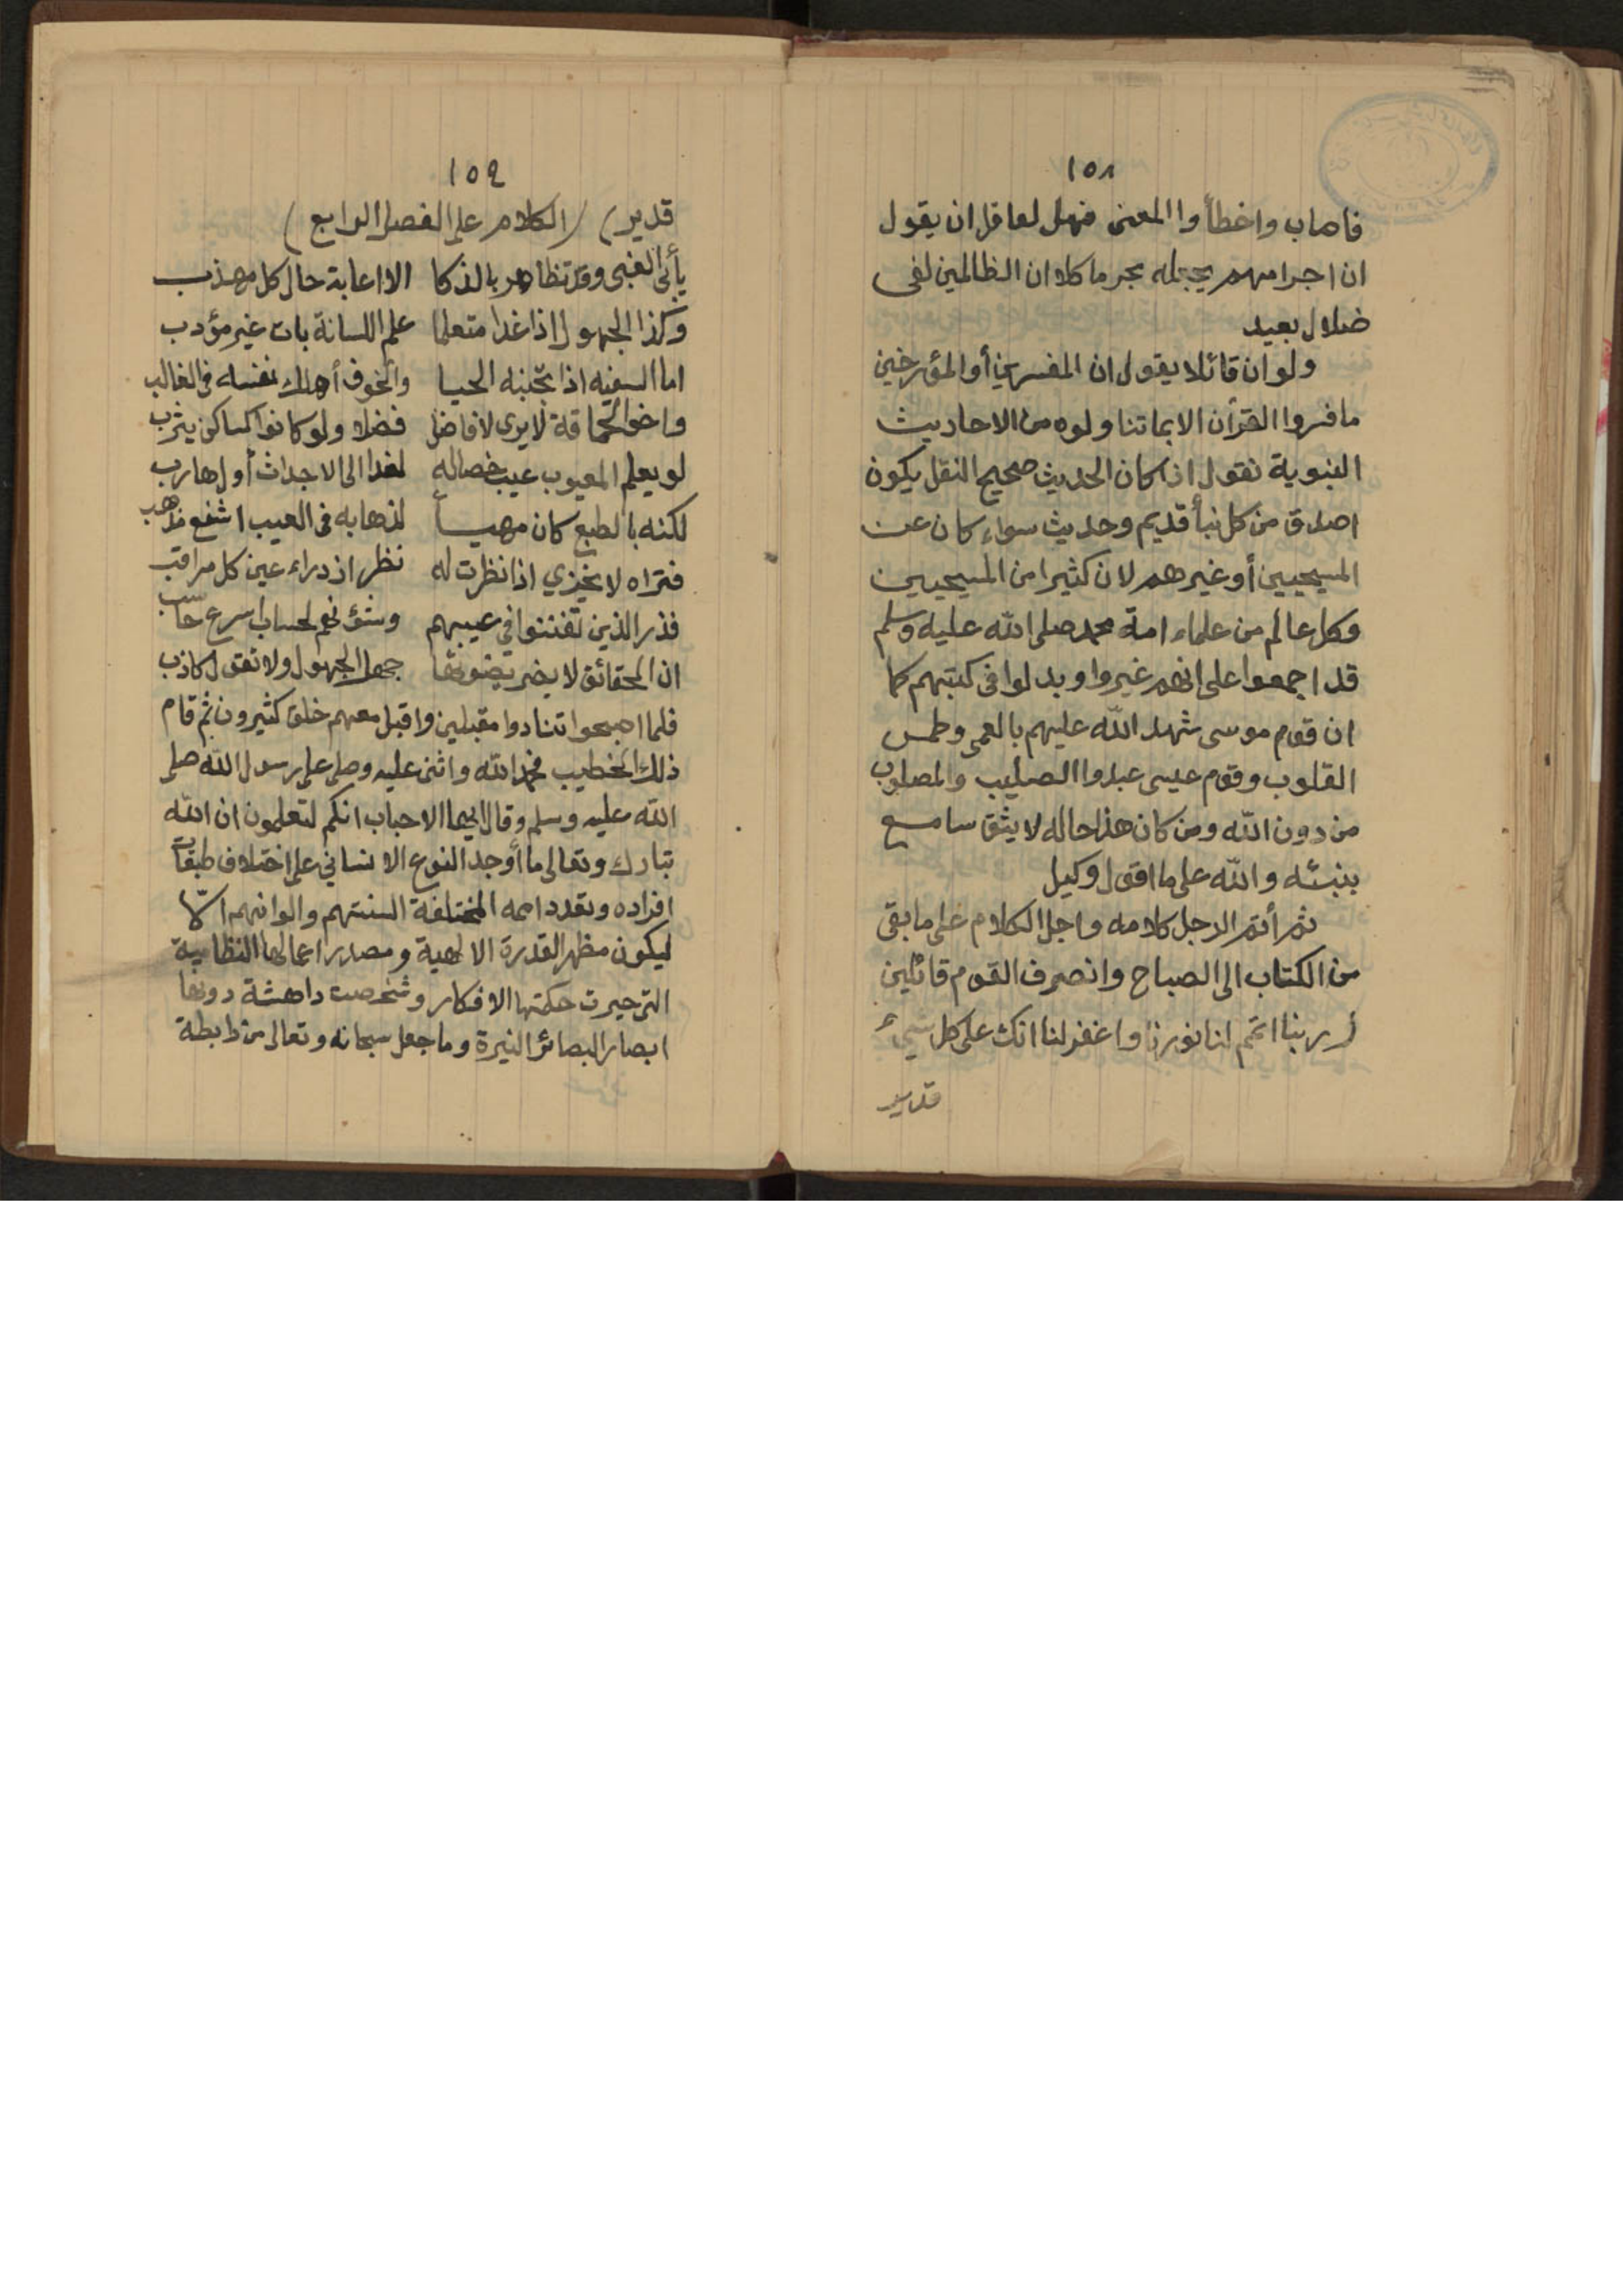 ١٥٨
فاصاب واخطأوا المعنى فهل لعاقل ان يقول
ان اجرامهم يجعله مجرما كلا ان الظالمين لفى
ضلال بعيد
ولو ان قائلا يقول ان المفسرين أو المؤرخين
ما فسروا القرأن الا بما تناولوه من الاحاديث
النبوية نقول اذا كان الحديث صحيح النقل يكون
اصدق من كل نبأ قديم وحديث سواء كان عن
المسيحيين أو غيرهم لان كثيرا من المسيحيين
وكل عالم من علماء امة محمد صلى الله عليه وسلم
قد اجمعوا على انهم غيروا وبدلوا فى كتبهم كما
ان قوم موسى شهد الله عليهم بالعمى وطمس
القلوب وقوم عيسى عبدوا الصليب والمصلوب
من دون الله ومن كان هذا حاله لا يثق سامع
بنبئه والله على ما اقول وكيل
ثم أتم الرجل كلامه واجل الكلام على ما بقى
من الكتاب الى الصباح وانصرف القوم قائلين
(ربنا اتمم لنا نورنا واغفر لنا انك على كل شيء
قدير
١٥٩
قدير) (الكلام على الفصل الرابع)
يأبى الغبى وقد تظاهر بالذكا الا اعابة حال كل مهذب
وكذا الجهول اذا غدا متعلما علم اللسانة بات غير مؤدب
اما السفيه اذا تجنبه الحيا والخوف أهلك نفسه فى الغالب
واخو الحماقة لا يرى لافاضل فضلا ولو كانوا كساكن يثرب
لو يعلم المعيوب عيب خصاله لغدا الى الاجداث أول هارب
لكنه بالطبع كان مهيبأ لذهابه فى العيب اشنع مذهب
فتراه لا يخزي اذا نظرت له نظر ازدراء عين كل مراقب
فذر الذين تفننوا في عيبهم وشؤنهم لحساب اسرع حاسب
ان الحقائق لا يضر بضوئها جهل الجهول ولا تقول كاذب
فلما اصبحوا تنادوا مقبلين واقبل معهم خلق كثيرون ثم قام
ذلك الخطيب فحمد الله واثنى عليه وصلى على رسول الله صلى
الله عليه وسلم وقال ايها الاحباب انكم لتعلمون ان الله
تبارك وتعالى ما أوجد النوع الانساني على اختلاف طبقات
افراده وتعدد اممه المختلفة السنتهم والوانهم الّا
ليكون مظهر القدرة الالهية ومصدر اعمالها النظامية
التى حيرت حكمتها الافكار وشخصت داهشة دونها
ابصار البصائر النيرة وما جعل سبحانه وتعالى من رابطة